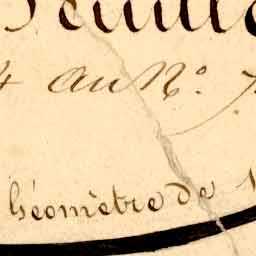 Feuille
au N.o
Géomètre de 1